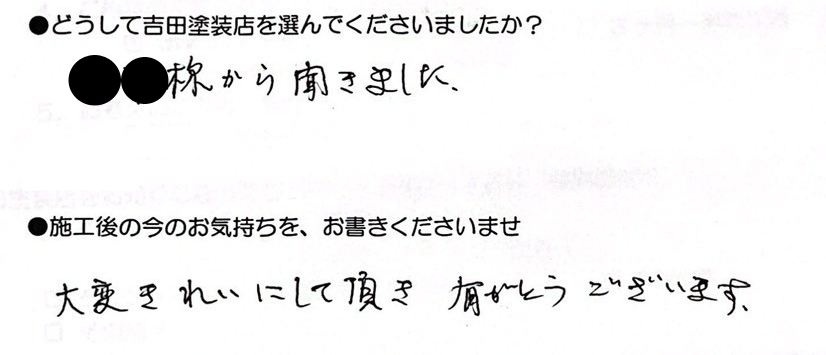 ●どうして吉田塗装店を選んでくださいましたか?
●●様から聞きました、
●施工後の今のお気持ちを、お書きくださいませ
大変きれいにして頂き 有がとうございます、